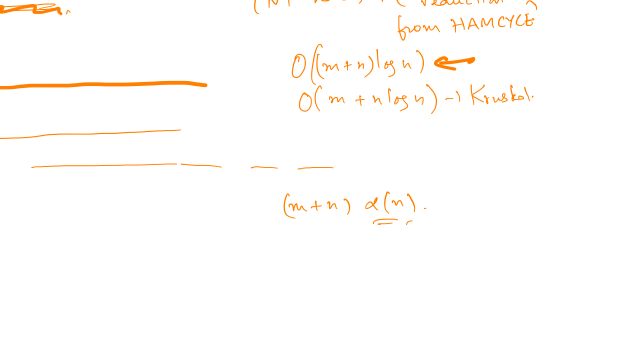 from HAMCYCLE
O((m+n) log n) ←
O(m + n log n) → Kruskal.
(m+n) α(n).